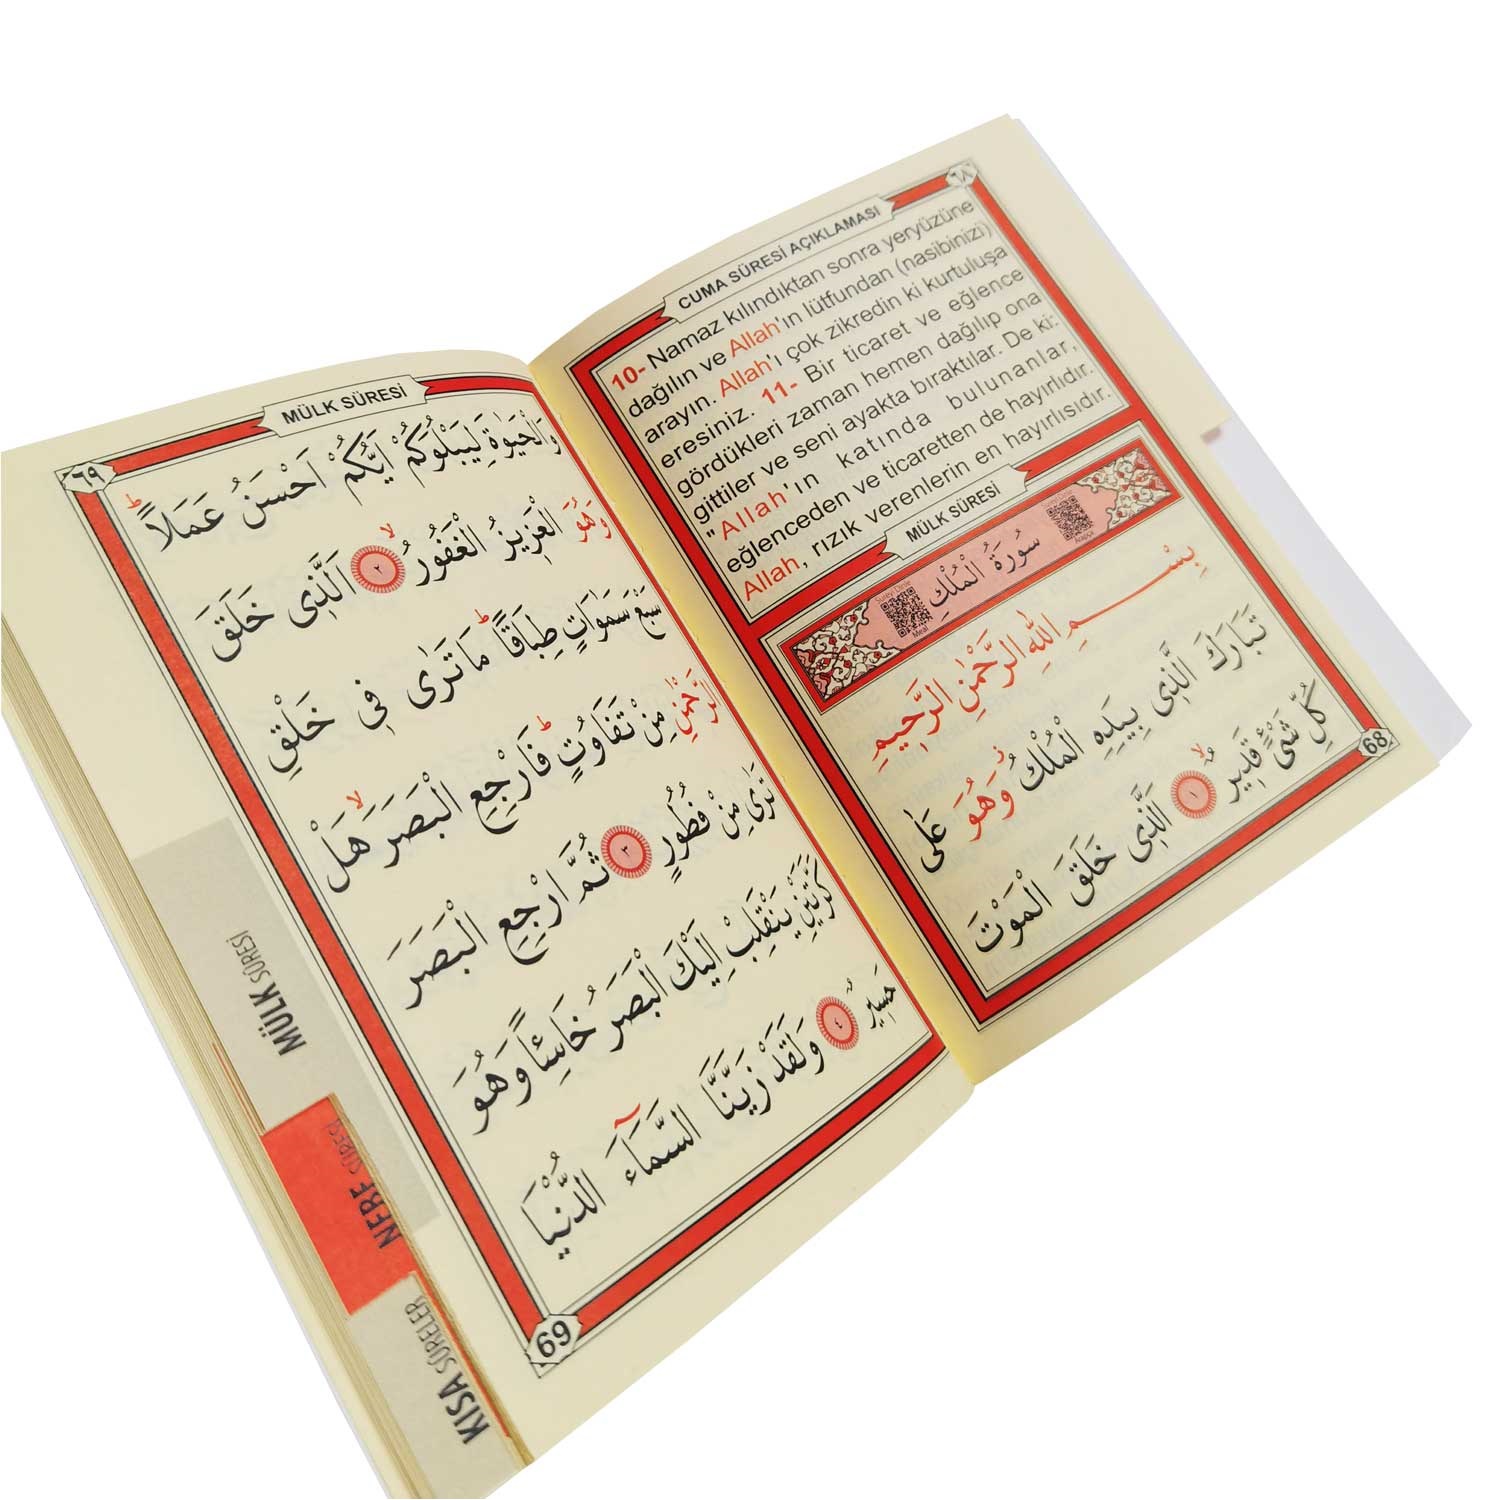 ٦٨
CUMA SÛRESİ AÇIKLAMASI
10- Namaz kılındıktan sonra yeryüzüne
dağılın ve Allah'ın lütfundan (nasibinizi)
arayın. Allah'ı çok zikredin ki kurtuluşa
eresiniz. 11- Bir ticaret ve eğlence
gördükleri zaman hemen dağılıp ona
gittiler ve seni ayakta bıraktılar. De ki:
"Allah'ın katında bulunanlar,
eğlenceden ve ticaretten de hayırlıdır.
Allah, rızık verenlerin en hayırlısıdır.
MÜLK SÛRESİ
سُورَةُ الْمُلْكِ
Sureyi Dinle
Arapça
Sureyi Dinle
Meal
بِسْمِ اللهِ الرَّحْمٰنِ الرَّحِيمِ
تَبَارَكَ الَّذِى بِيَدِهِ الْمُلْكُ وَهُوَ عَلٰى
كُلِّ شَىْءٍ قَدِيرٌۙ ﴿١﴾ اَلَّذِى خَلَقَ الْمَوْتَ
68
MÜLK SÛRESİ
٦٩
وَالْحَيٰوةَ لِيَبْلُوَكُمْ اَيُّكُمْ اَحْسَنُ عَمَلًاۜ
وَهُوَ الْعَزِيزُ الْغَفُورُۙ ﴿٢﴾ اَلَّذِى خَلَقَ
سَبْعَ سَمٰوَاتٍ طِبَاقًاۜ مَا تَرٰى فِى خَلْقِ
الرَّحْمٰنِ مِنْ تَفَاوُتٍۜ فَارْجِعِ الْبَصَرَۙ هَلْ
تَرٰى مِنْ فُطُورٍ ﴿٣﴾ ثُمَّ ارْجِعِ الْبَصَرَ
كَرَّتَيْنِ يَنْقَلِبْ اِلَيْكَ الْبَصَرُ خَاسِئًا وَهُوَ
حَسِيرٌ ﴿٤﴾ وَلَقَدْ زَيَّنَّا السَّمَٓاءَ الدُّنْيَا
69
MÜLK SÛRESİ
NEBE SÛRESİ
KISA SÛRELER